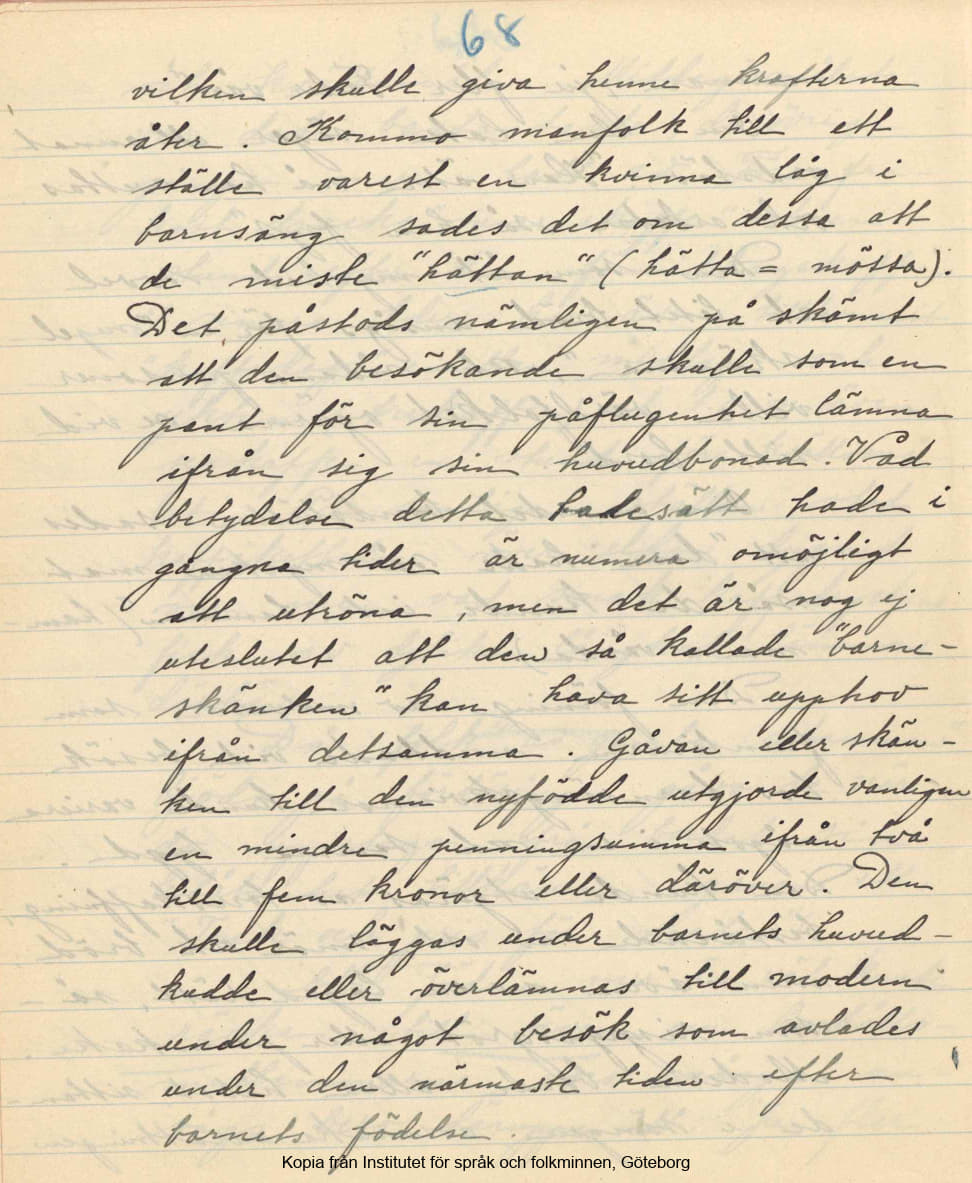 68
vilken skulle giva henne krafterna
åter. Kommo manfolk till ett
ställe varest en kvinna låg i
barnsäng sades det om dessa att
de miste "hättan" (hätta = mössa).
Det påstods nämligen på skämt
att den besökande skulle som en
pant för sin påflugenhet lämna
ifrån sig sin huvudbonad. Vad
betydelse detta talesätt hade i
gångna tider är numera omöjligt
att utröna, men det är nog ej
uteslutet att den så kallade "barne-
skänken" kan hava sitt upphov
ifrån detsamma. Gåvan eller skän-
ken till den nyfödde utgjorde vanligen
en mindre penningsumma ifrån två
till fem kronor eller däröver. Den
skulle läggas under barnets huvud-
kudde eller överlämnas till modern
under något besök som avlades
under den närmaste tiden efter
barnets födelse.
Kopia från Institutet för språk och folkminnen, Göteborg